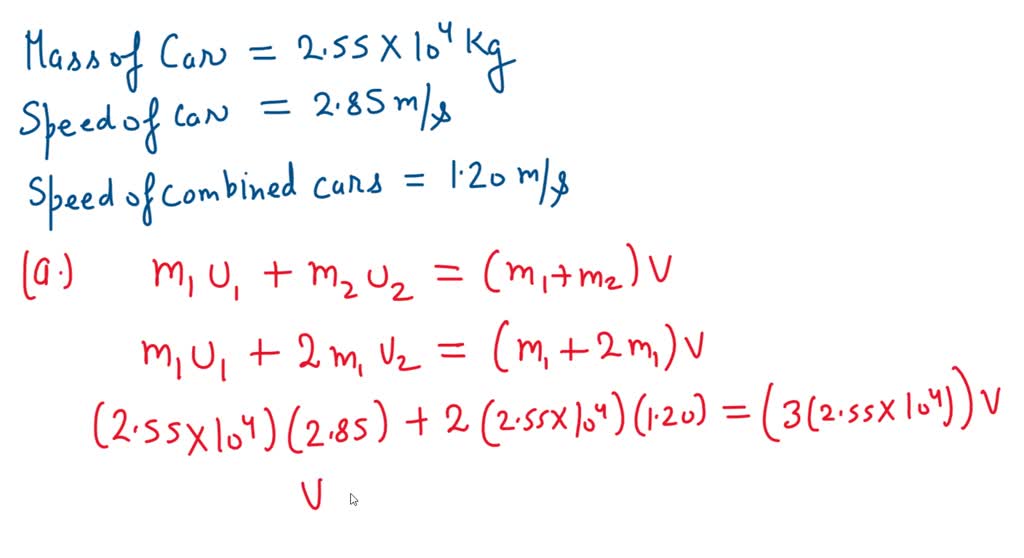 Mass of Car = 2.55 X 10⁴ Kg
Speed of Car = 2.85 m/s
Speed of Combined cars = 1.20 m/s
(a.) m₁ U₁ + m₂ U₂ = (m₁+m₂) V
m₁ U₁ + 2 m₁ U₂ = (m₁ + 2 m₁) V
(2.55 X 10⁴) (2.85) + 2 (2.55 X 10⁴) (1.20) = (3 (2.55 X 10⁴)) V
V